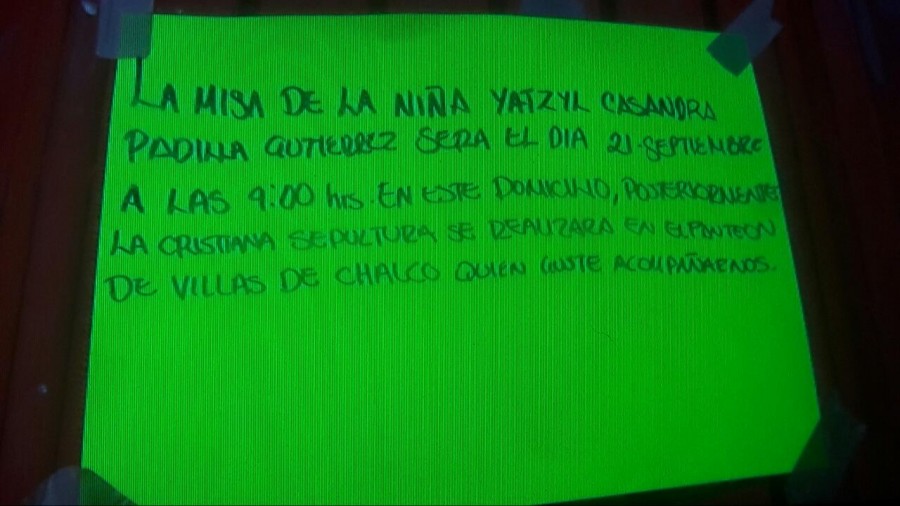 LA MISA DE LA NIÑA YATZYL CASANDRA
PADILLA GUTIERREZ SERA EL DIA 21-SEPTIEMBRE
A LAS 9:00 hrs. EN ESTE DOMICILIO, POSTERIORMENTE
LA CRISTIANA SEPULTURA SE REALIZARA EN EL PANTEON
DE VILLAS DE CHALCO QUIEN GUSTE ACOMPAÑARNOS.